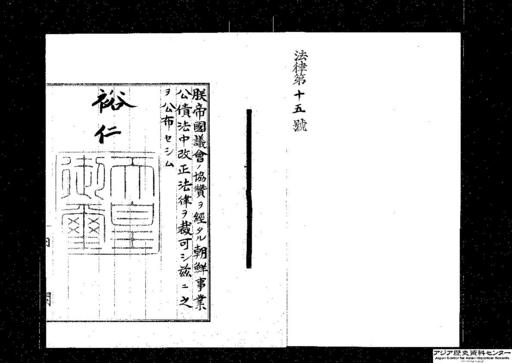 法律第十五號
朕帝國議會ノ協贊ヲ經タル朝鮮事業
公債法中改正法律ヲ裁可シ茲ニ之
ヲ公布セシム
裕仁
天皇
御璽
内閣
アジア歴史資料センター
Japan Center for Asian Historical Records